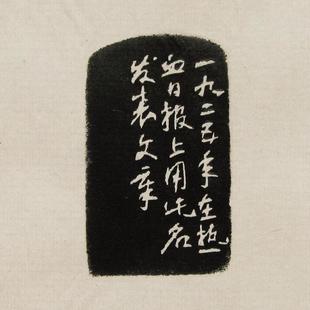 一九二五年在热
血日报上用此名
发表文章